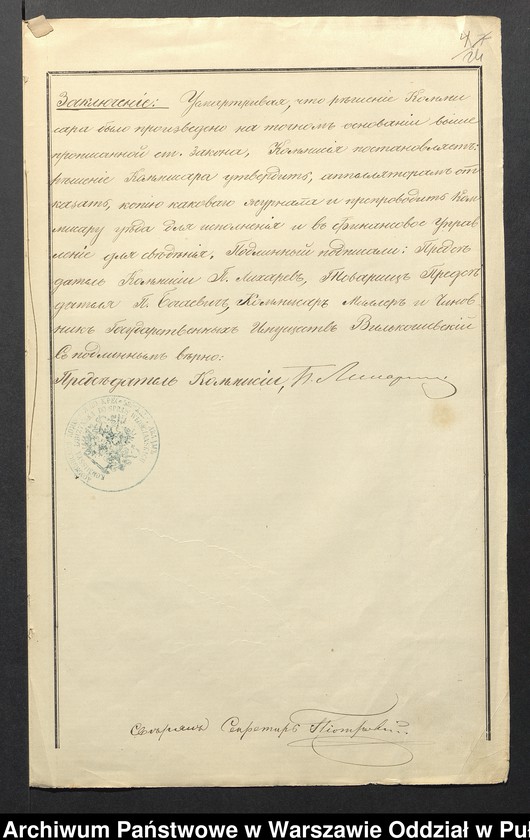 Заключеніе: Усматривая, что рѣшеніе Коммис
сара было произведено на точномъ основаніи выше
прописанной ст. закона, Коммисія постановляетъ:
рѣшеніе Коммисара утвердить, аппелляторамъ от
казать, копію каковаго журнала и препроводить Ком
мисару уѣзда для исполненія и въ Финансовое Управ
леніе для свѣдѣнія. Подлинный подписали: Предсѣ
датель Коммисіи П. Лихаревъ, Товарищъ Предсѣ
дателя П. Коммисаръ Миллеръ и Чинов-
никъ Государственныхъ Имуществъ
Съ подлиннымъ вѣрно:
Предсѣдатель Коммисіи, П. Лихаревъ
Свѣрялъ Секретарь
24
Archiwum Państwowe w Warszawie Oddział w Pu